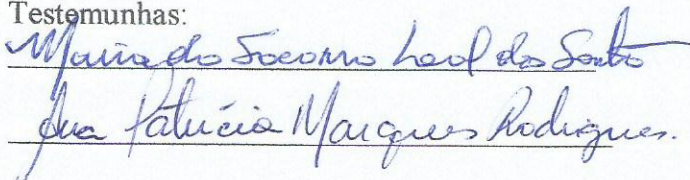 Testemunhas:
Maria do Socorro Leal dos Santos
Ana Patrícia Marques Rodrigues.